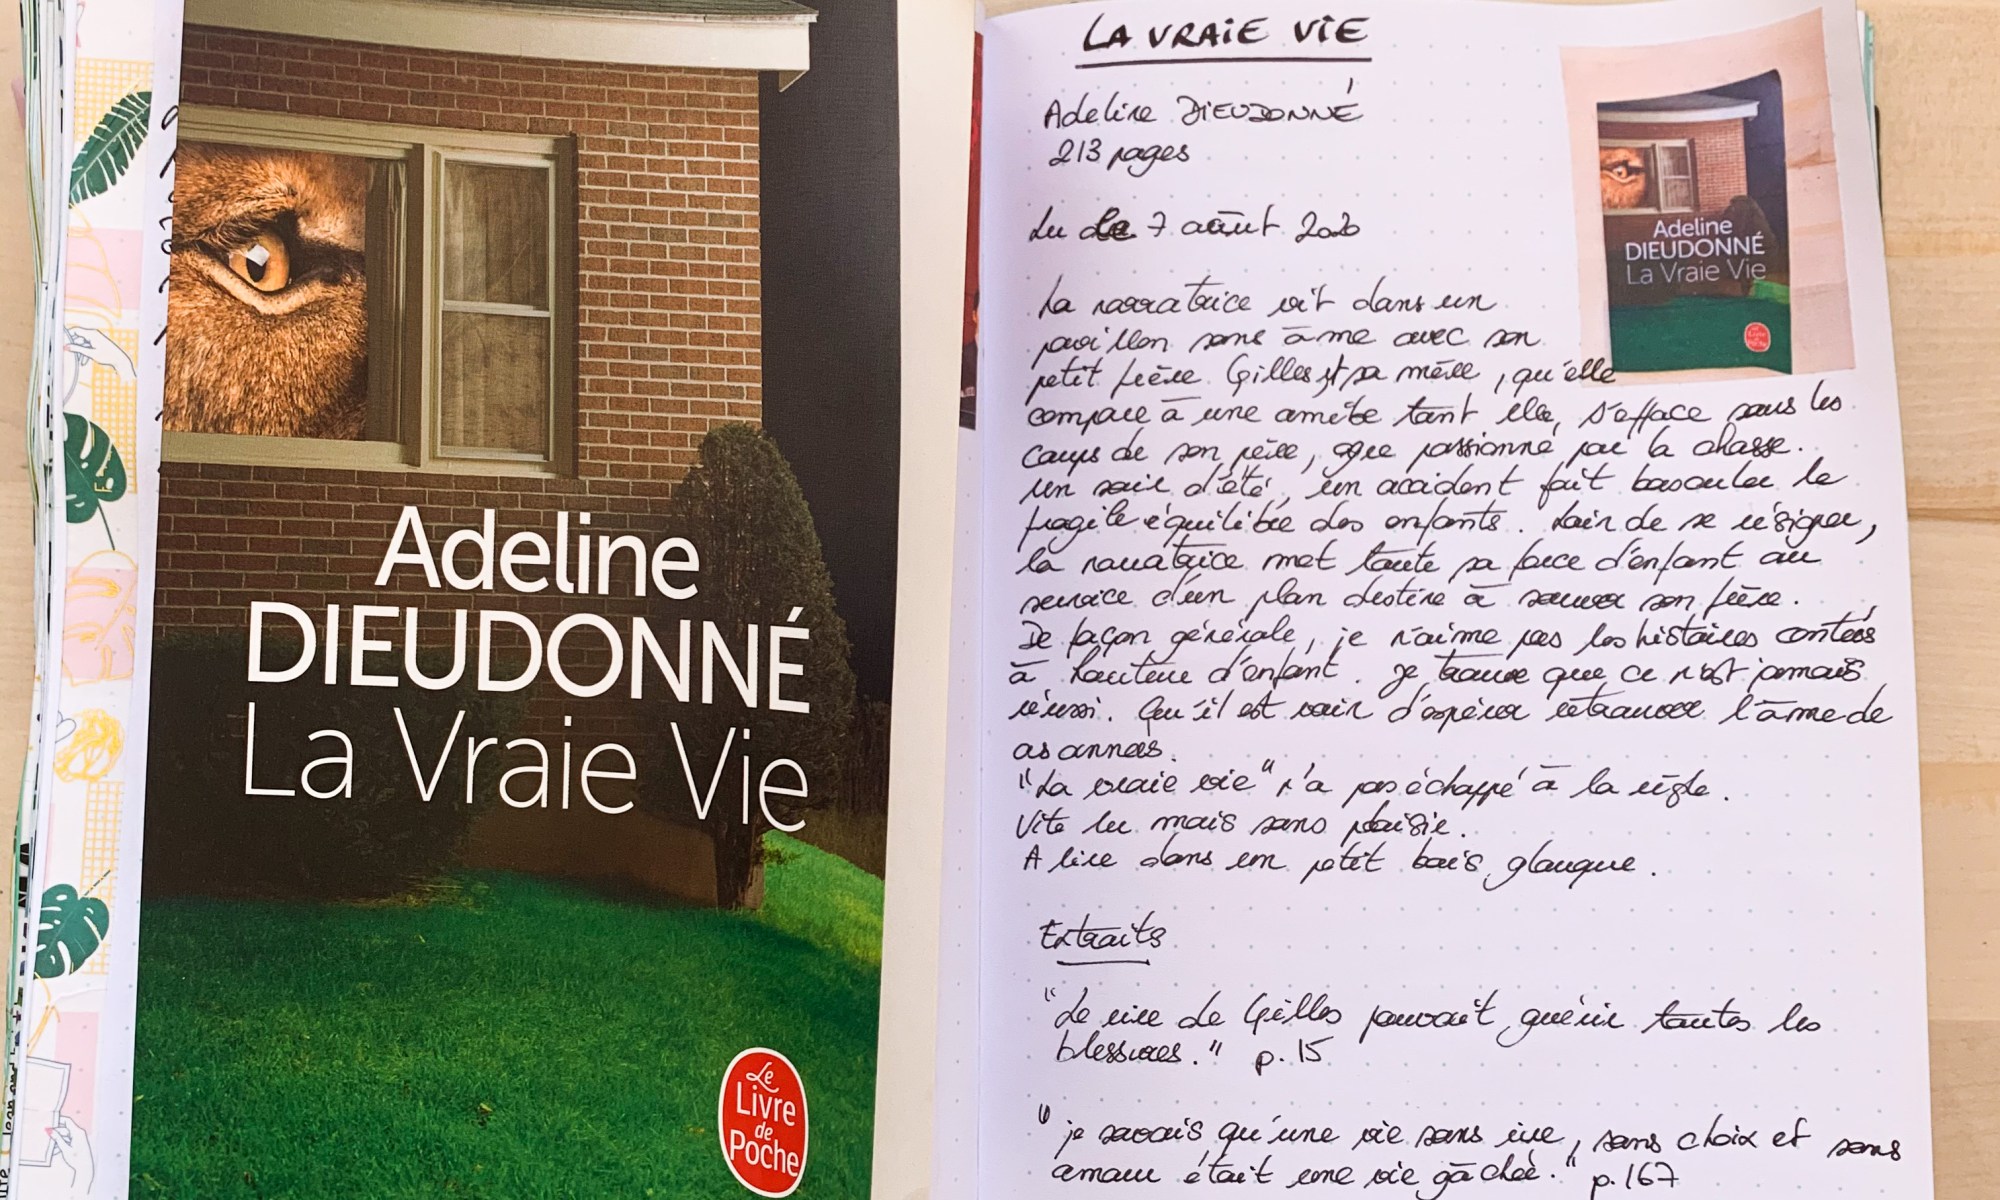 Adeline
DIEUDONNÉ
La Vraie Vie
Le
Livre
de
Poche
LA VRAIE VIE
Adeline DIEUDONNÉ
213 pages
Lu le 7 août 2020
La narratrice vit dans un
pavillon sans âme avec son
petit frère Gilles et sa mère, qu'elle
compare à une amibe tant elle, s'efface sous les
coups de son père, ogre passionné par la chasse.
Un soir d'été, un accident fait basculer le
fragile équilibre des enfants. Loin de se résigner,
la narratrice met toute sa force d'enfant au
service d'un plan destiné à sauver son frère.
De façon générale, je n'aime pas les histoires contées
à hauteur d'enfant. Je trouve que ce n'est jamais
réussi. Qu'il est vain d'espérer retrouver l'âme de
ces années.
"La vraie vie" n'a pas échappé à la règle.
Vite lu mais sans plaisir.
A lire dans un petit bois glauque.
Extraits
"Le rire de Gilles pouvait guérir toutes les
blessures." p. 15
"je savais qu'une vie sans rire, sans choix et sans
amour était une vie gâchée." p. 167
Adeline
DIEUDONNÉ
La Vraie Vie
Le
Livre
de
Poche